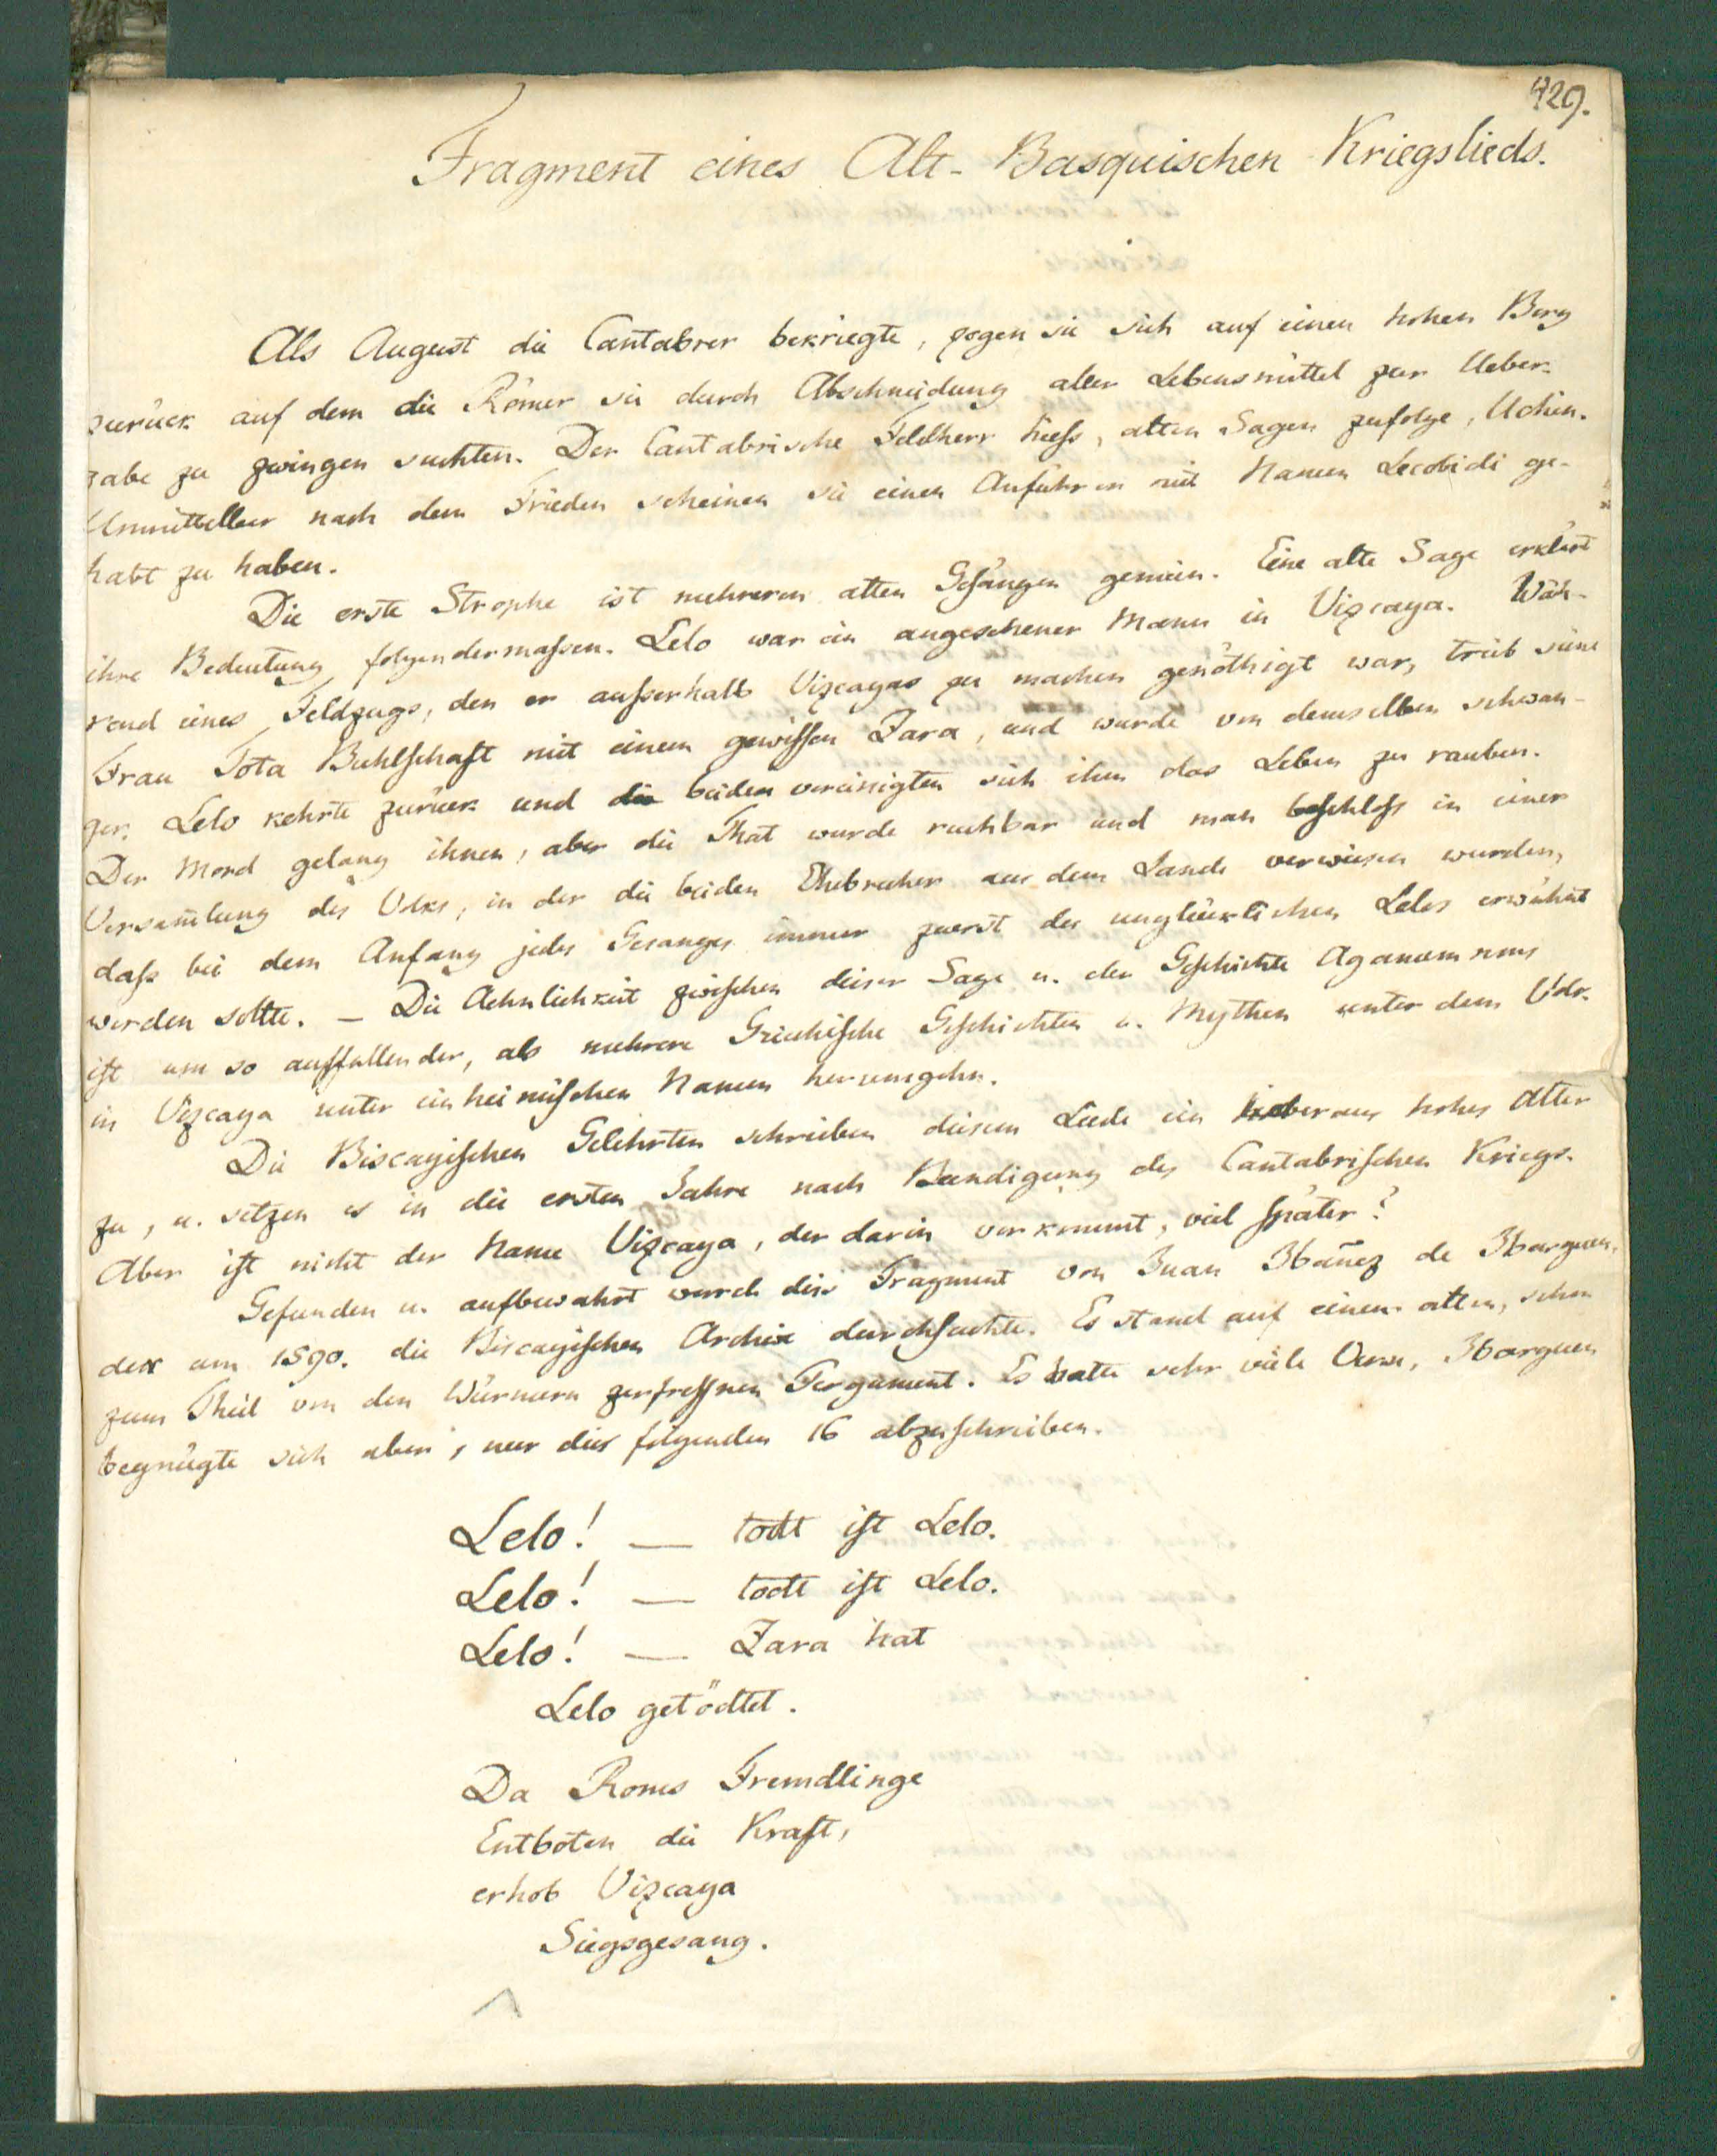 429.
Fragment eines Alt-Basquischen Kriegslieds.
Als August die Cantabrer bekriegte, zogen sie sich auf einen hohen Berg
zurück auf dem die Römer sie durch Abschneidung aller Lebensmittel zur Ueber-
gabe zu zwingen suchten. Der Cantabrische Feldherr hiess, alten Sagen zufolge, Uchin.
Unmittelbar nach dem Frieden scheinen sie einen Anführer mit Namen Lecobidi ge-
habt zu haben.
Die erste Strophe ist mehreren alten Gesängen gemein. Eine alte Sage erklärt
ihre Bedeutung folgendermassen. Lelo war ein angesehener Mann in Vizcaya. Wäh-
rend eines Feldzugs, den er ausserhalb Vizcayas zu machen genöthigt war, trieb seine
Frau Tota Buhlschaft mit einem gewissen Zara, und wurde von demselben schwan-
ger. Lelo kehrte zurück und die beiden vereinigten sich ihm das Leben zu rauben.
Der Mord gelang ihnen, aber die That wurde ruchbar und man beschloss in einer
Versam̅lung des Volks, in der die beiden Ehebrecher aus dem Lande verwiesen wurden,
dass bei dem Anfang jedes Gesanges immer zuerst des unglücklichen Lelos erwähnt
werden sollte. — Die Aehnlichkeit zwischen dieser Sage u. der Geschichte Agamemnons
ist um so auffallender, als mehrere Griechische Geschichten u. Mythen unter dem Volk
in Vizcaya unter einheimischen Namen herumgehn.
Die Biscayischen Gelehrten schrieben diesem Liede ein ueberaus hohes Alter
zu, u. setzen es in die ersten Jahre nach Baendigung des Cantabrischen Kriegs.
Aber ist nicht der Name Vizcaya, der darin vorkommt, viel später?
Gefunden u. aufbewahrt ward dies Fragment von Juan Ibañez de Ibarguen,
der um 1590. die Biscayischen Archive durchsuchte. Es stand auf einem alten, schon
zum Theil von den Würmern zerfressnen Pergament. Es hatte sehr viele Verse, Ibarguen
begnügte sich aber, nur die folgenden 16 abzuschreiben.
Lelo! — todt ist Lelo.
Lelo! — todt ist Lelo.
Lelo! — Zara hat
Lelo getödtet.
Da Roms Fremdlinge
Entboten die Kraft,
erhob Vizcaya
Siegsgesang.